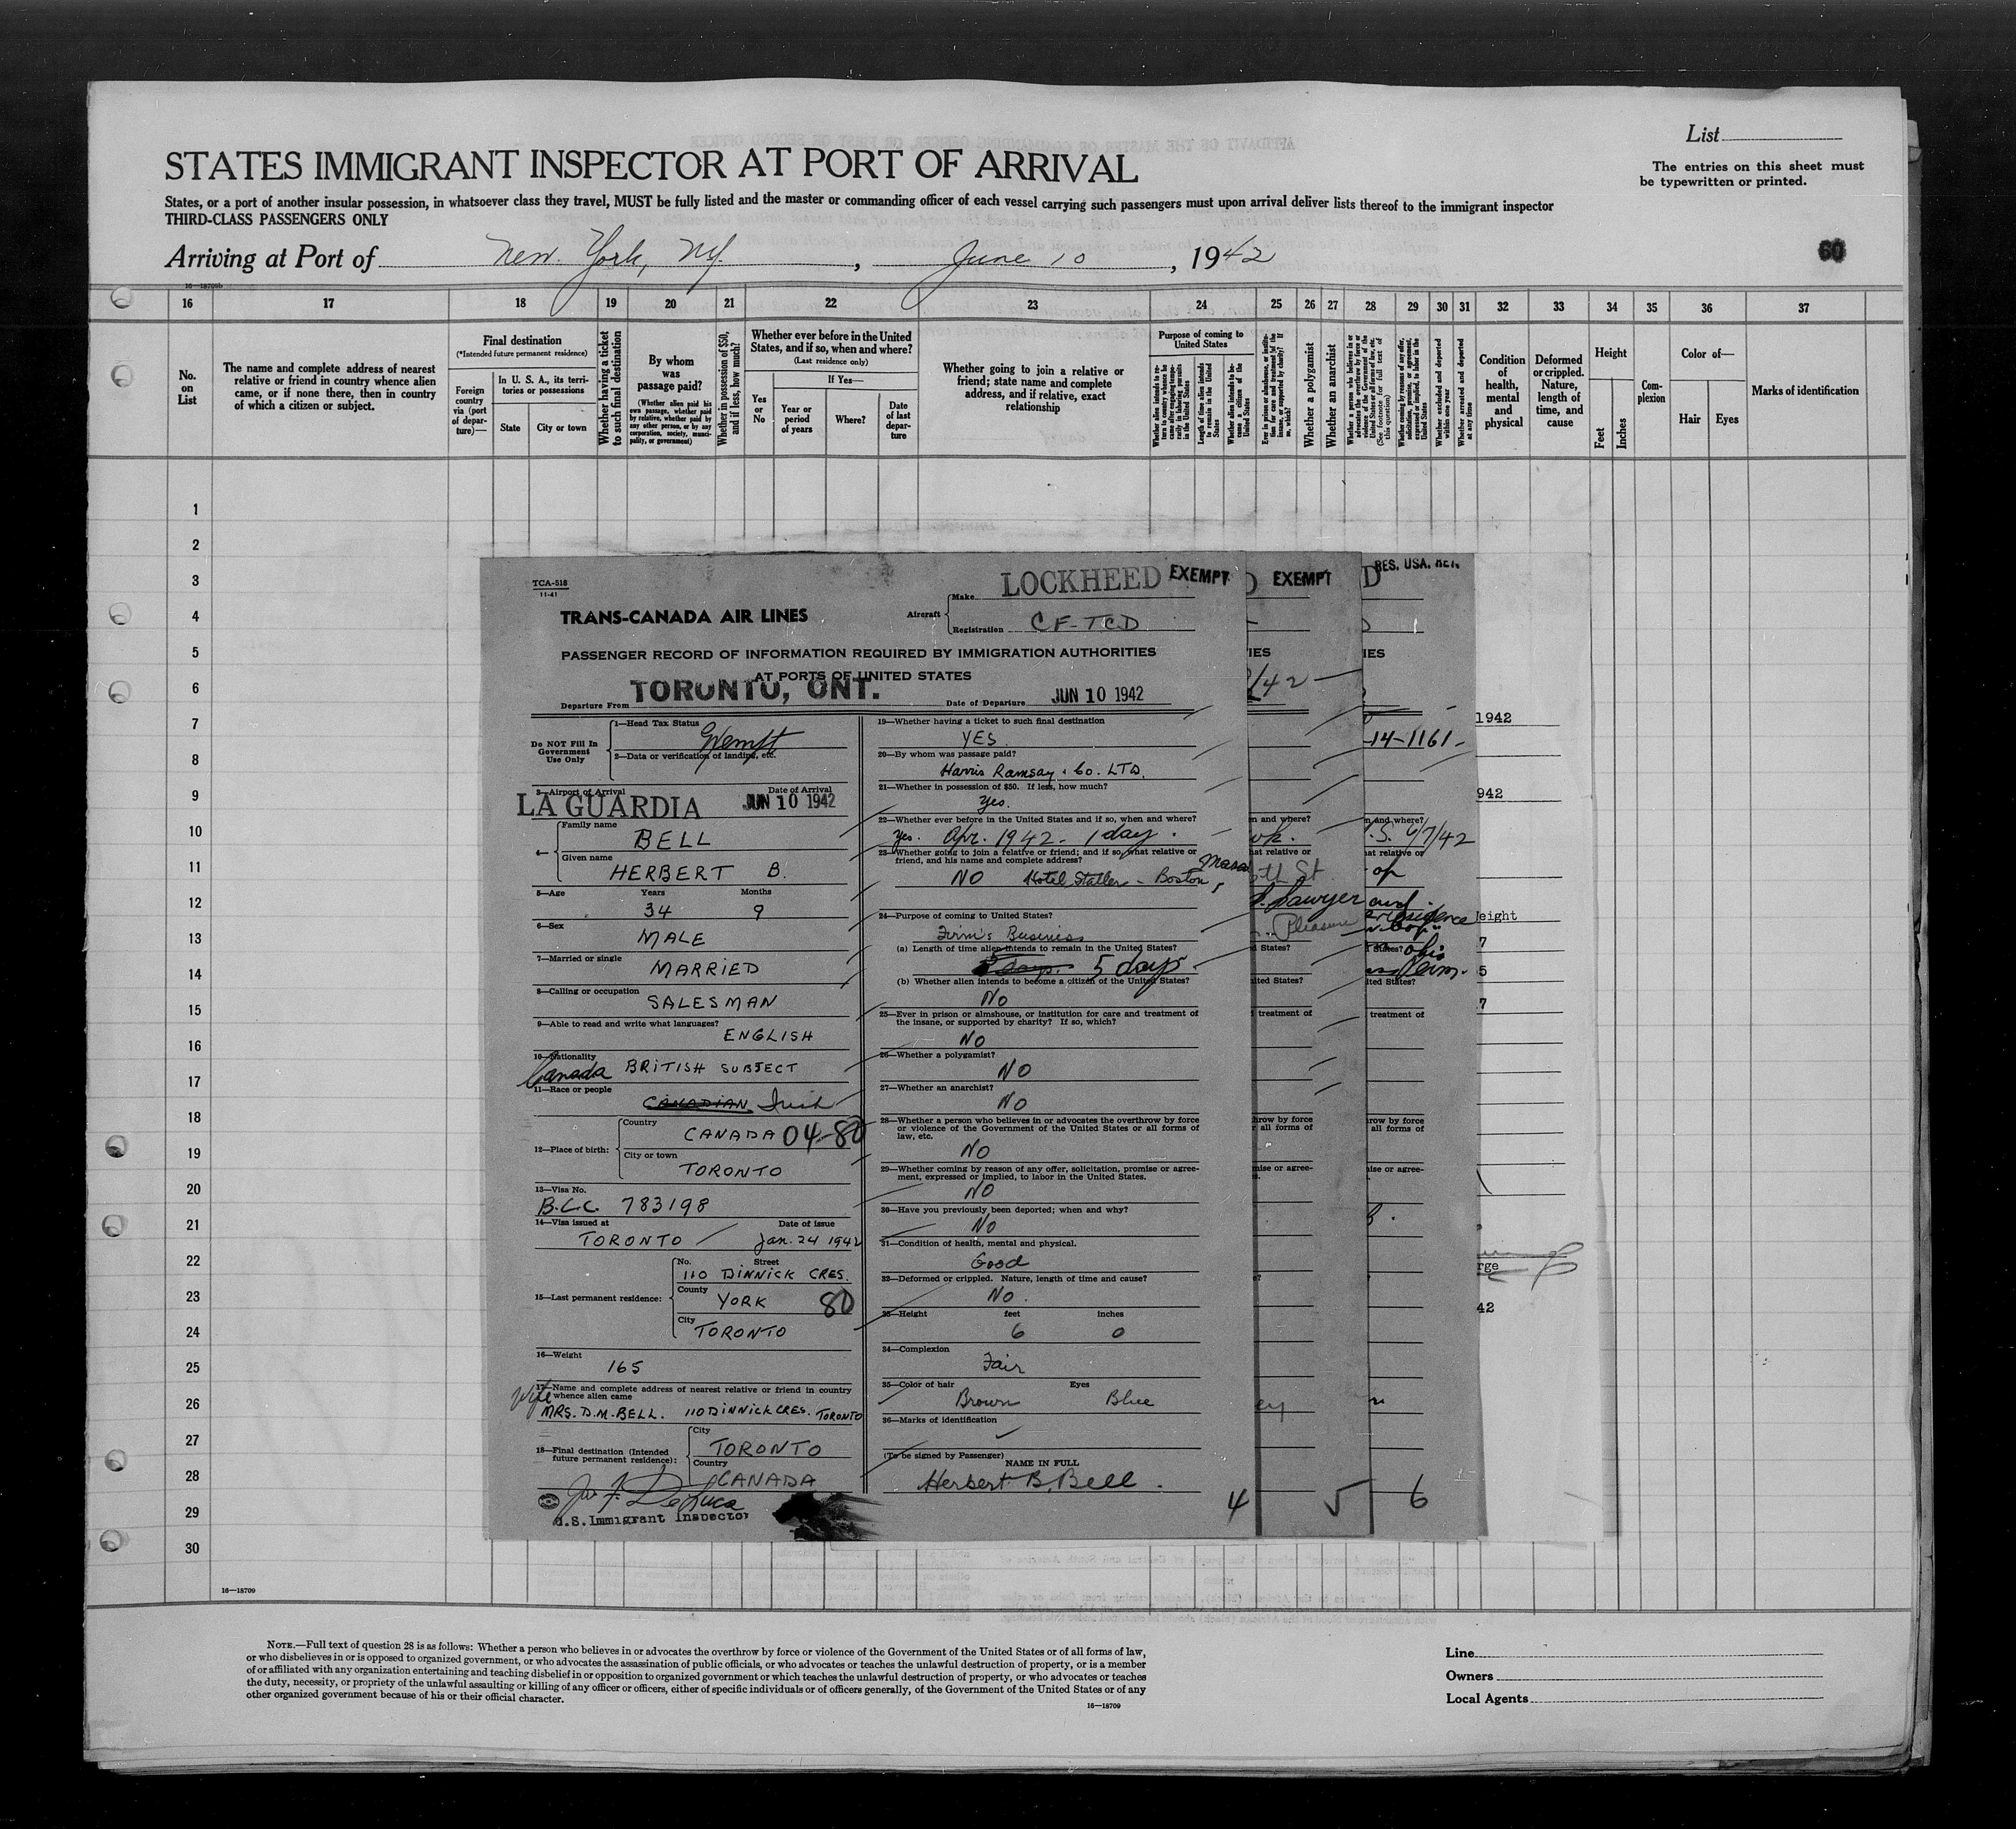 List
STATES IMMIGRANT INSPECTOR AT PORT OF ARRIVAL
The entries on this sheet must
be typewritten or printed.
States, or a port of another insular possession, in whatsoever class they travel, MUST be fully listed and the master or commanding officer of each vessel carrying such passengers must upon arrival deliver lists thereof to the immigrant inspector
THIRD-CLASS PASSENGERS ONLY
Arriving at Port of New York, NY. , June 10 , 1942
60
16—18709b
16 17 18 19 20 21 22 23 24 25 26 27 28 29 30 31 32 33 34 35 36 37
No. on List
The name and complete address of nearest
relative or friend in country whence alien
came, or if none there, then in country
of which a citizen or subject.
Final destination
(*Intended future permanent residence)
Foreign country via (port of departure)—
In U. S. A., its territories or possessions
State
City or town
Whether having a ticket to such final destination
By whom was passage paid?
(Whether alien paid his own passage, whether paid by relative, whether paid by any other person, or by any corporation, society, municipality, or government)
Whether in possession of $50, and if less, how much?
Whether ever before in the United
States, and if so, when and where?
(Last residence only)
If Yes—
Yes or No
Year or period of years
Where?
Date of last departure
Whether going to join a relative or
friend; state name and complete
address, and if relative, exact
relationship
Purpose of coming to
United States
Length of time alien intends to remain in the United States
Whether alien intends to become a citizen of the United States
Whether a polygamist
Whether an anarchist
Whether excluded and deported within one year
Whether arrested and deported at any time
Condition of health, mental and physical
Deformed or crippled. Nature, length of time, and cause
Height
Feet
Inches
Complexion
Color of—
Hair
Eyes
Marks of identification
1
2
3
4
5
6
7
8
9
10
11
12
13
14
15
16
17
18
19
20
21
22
23
24
25
26
27
28
29
30
TCA-518
11-41
TRANS-CANADA AIR LINES
Aircraft
Make LOCKHEED
EXEMPT
Registration CF-TCD
PASSENGER RECORD OF INFORMATION REQUIRED BY IMMIGRATION AUTHORITIES
AT PORTS OF UNITED STATES
Departure From TORONTO, ONT.
Date of Departure JUN 10 1942
Do NOT Fill In
Government
Use Only
1—Head Tax Status
Exempt
2—Data or verification of landing, etc.
3—Airport of Arrival
LA GUARDIA
Date of Arrival
JUN 10 1942
4—
Family name
BELL
Given name
HERBERT B.
5—Age Years Months
34 9
6—Sex
MALE
7—Married or single
MARRIED
8—Calling or occupation
SALESMAN
9—Able to read and write what languages?
ENGLISH
10—Nationality
Canada BRITISH SUBJECT
11—Race or people
CANADIAN Irish
12—Place of birth:
Country
CANADA 04-80
City or town
TORONTO
13—Visa No.
B.C.C. 783198
14—Visa issued at Date of issue
TORONTO Jan. 24 1942
15—Last permanent residence:
No. Street
110 DINNICK CRES.
County
YORK 80
City
TORONTO
16—Weight
165
17—Name and complete address of nearest relative or friend in country
whence alien came
Wife
MRS. D.M. BELL. 110 DINNICK CRES. TORONTO
18—Final destination (Intended
future permanent residence):
City
TORONTO
Country
CANADA
De Luca
U.S. Immigrant Inspector
19—Whether having a ticket to such final destination
YES
20—By whom was passage paid?
Harris Ramsay & Co. LTD.
21—Whether in possession of $50. If less, how much?
Yes.
22—Whether ever before in the United States and if so, when and where?
Yes. Apr. 1942 - 1 day.
23—Whether going to join a relative or friend; and if so, what relative or
friend, and his name and complete address?
NO Hotel Statler - Boston, Mass
24—Purpose of coming to United States?
Firm's Business
(a) Length of time alien intends to remain in the United States?
5 days.
(b) Whether alien intends to become a citizen of the United States?
No
25—Ever in prison or almshouse, or institution for care and treatment of
the insane, or supported by charity? If so, which?
NO
26—Whether a polygamist?
NO
27—Whether an anarchist?
NO
28—Whether a person who believes in or advocates the overthrow by force
or violence of the Government of the United States or all forms of
law, etc.
NO
29—Whether coming by reason of any offer, solicitation, promise or agree-
ment, expressed or implied, to labor in the United States.
NO
30—Have you previously been deported; when and why?
NO
31—Condition of health, mental and physical.
Good
32—Deformed or crippled. Nature, length of time and cause?
No.
33—Height feet inches
6 0
34—Complexion
Fair
35—Color of hair Eyes
Brown Blue
36—Marks of identification
(To be signed by Passenger)
NAME IN FULL
Herbert B. Bell.
4
EXEMPT
5
RES. USA.
-14-1161-
6/7/42
6
1942
942
eight
7
5
7
rge
42
16—18709
NOTE.—Full text of question 28 is as follows: Whether a person who believes in or advocates the overthrow by force or violence of the Government of the United States or of all forms of law,
or who disbelieves in or is opposed to organized government, or who advocates the assassination of public officials, or who advocates or teaches the unlawful destruction of property, or is a member
of or affiliated with any organization entertaining and teaching disbelief in or opposition to organized government or which teaches the unlawful destruction of property, or who advocates or teaches
the duty, necessity, or propriety of the unlawful assaulting or killing of any officer or officers, either of specific individuals or of officers generally, of the Government of the United States or of any
other organized government because of his or their official character.
16—18709
Line
Owners
Local Agents